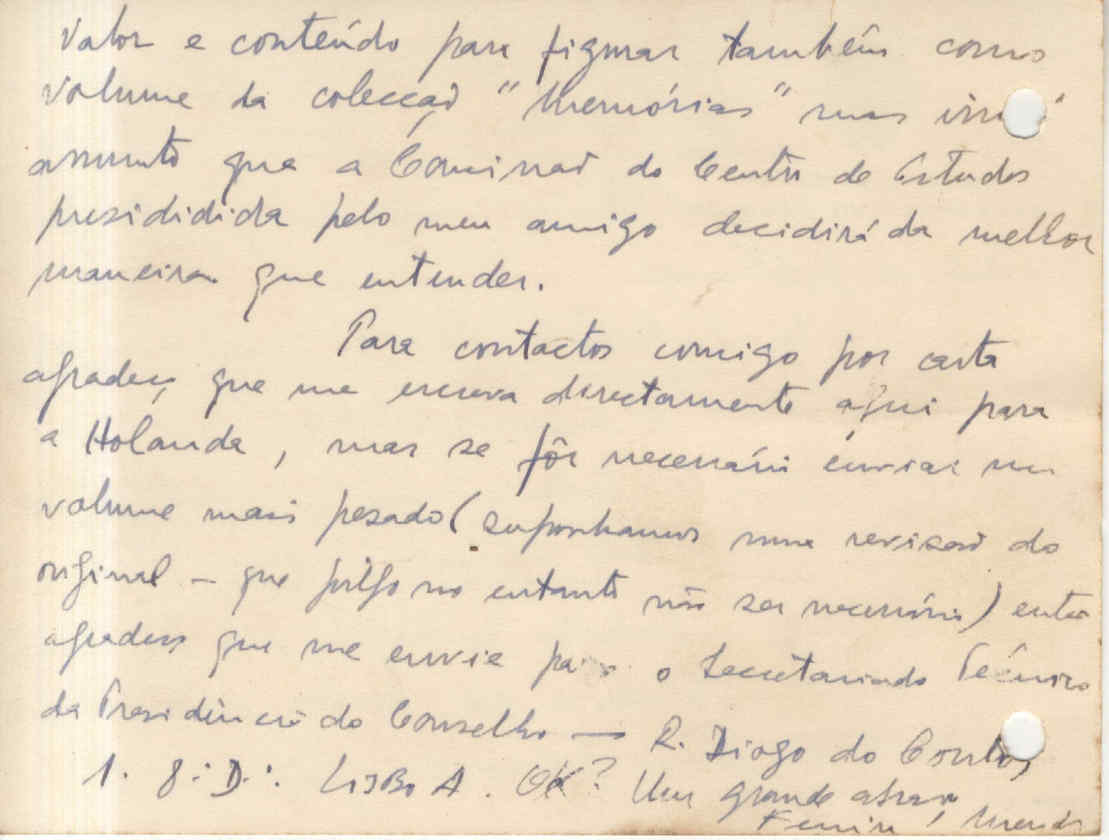 valor e conteúdo para figurar também como
volume da colecção "Memórias" mas isso é
assunto que a Comissão do Centro de Estudos
presididida pelo meu amigo decidirá da melhor
maneira que entender.
Para contactos comigo por carta
agradeço que me escreva directamente aqui para
a Holanda, mas se fôr necessário enviar um
volume mais pesado (suponhamos uma revisão do
original - que julgo no entanto não ser necessária) então
agradeço que me envie para o Secretariado Técnico
da Presidência do Conselho — R. Diogo do Couto,
1. 8º D.º LISBOA. OK? Um grande abraço,
Mendes